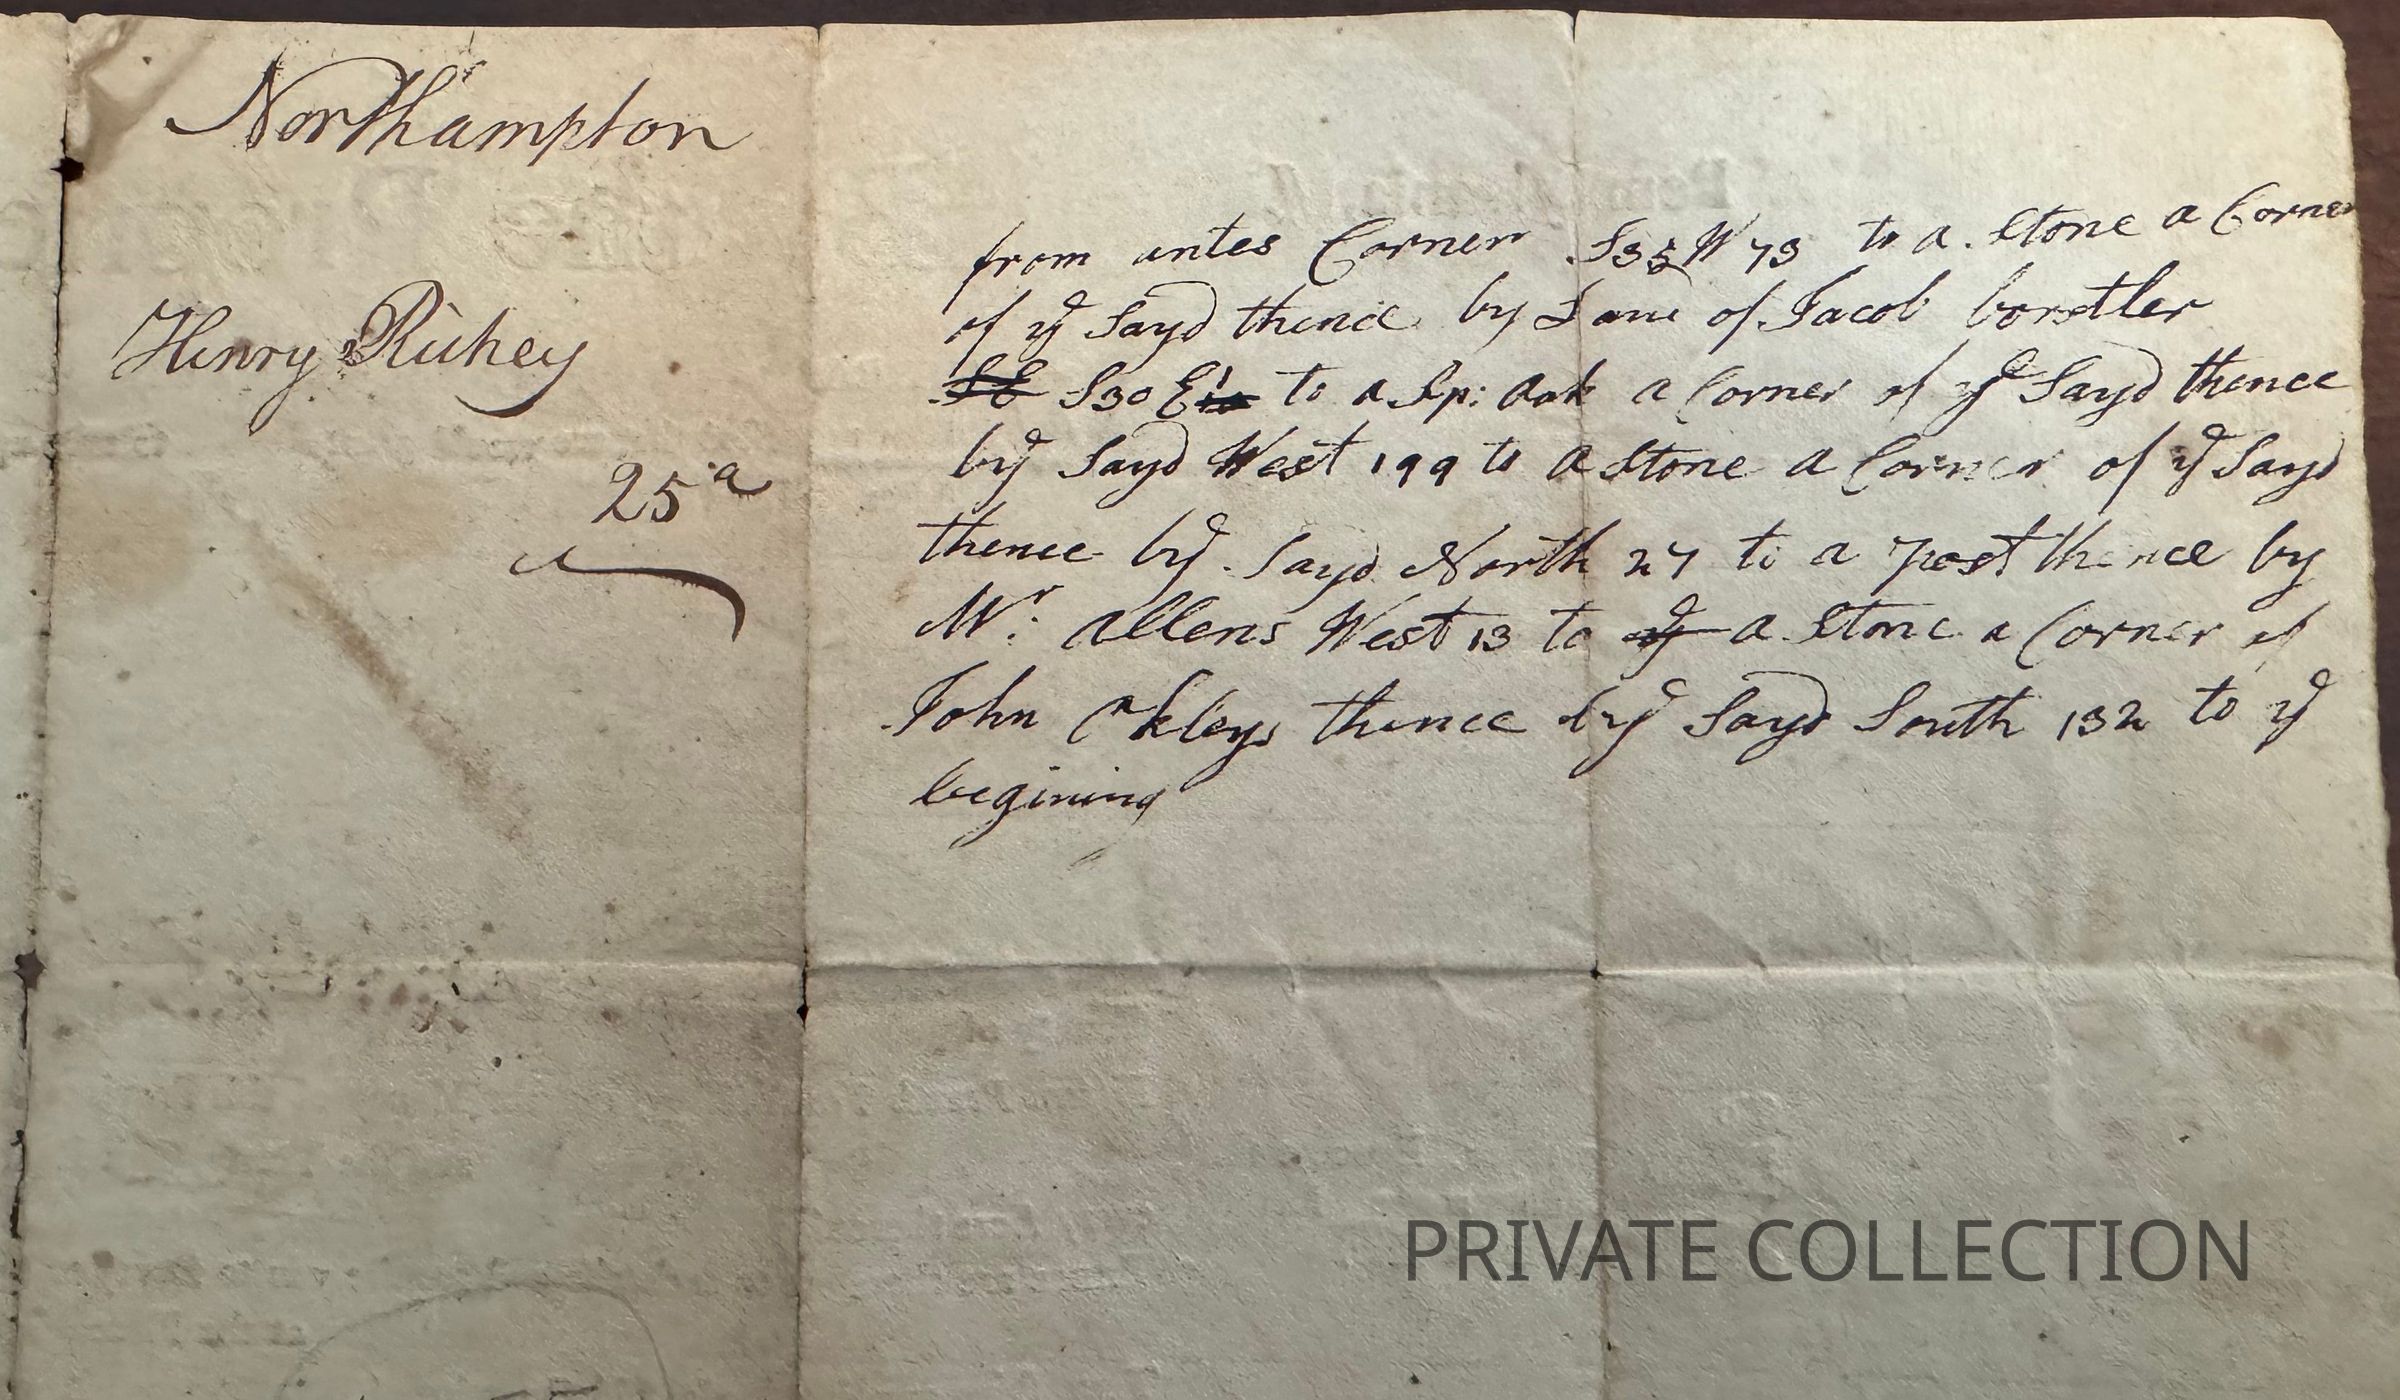 Northampton
Henry Richey
25 a
from antes Corner S35W 73 to a Stone a Corner
of ye Sayd thence by Land of Jacob borstler
S30 E to a Sp: Oak a Corner of ye Sayd thence
by Sayd West 199 to a Stone a Corner of ye Sayd
thence by Sayd North 27 to a post thence by
Mr: allens West 13 to a Stone a Corner of
John Okleys thence by Sayd South 132 to ye
begining
PRIVATE COLLECTION